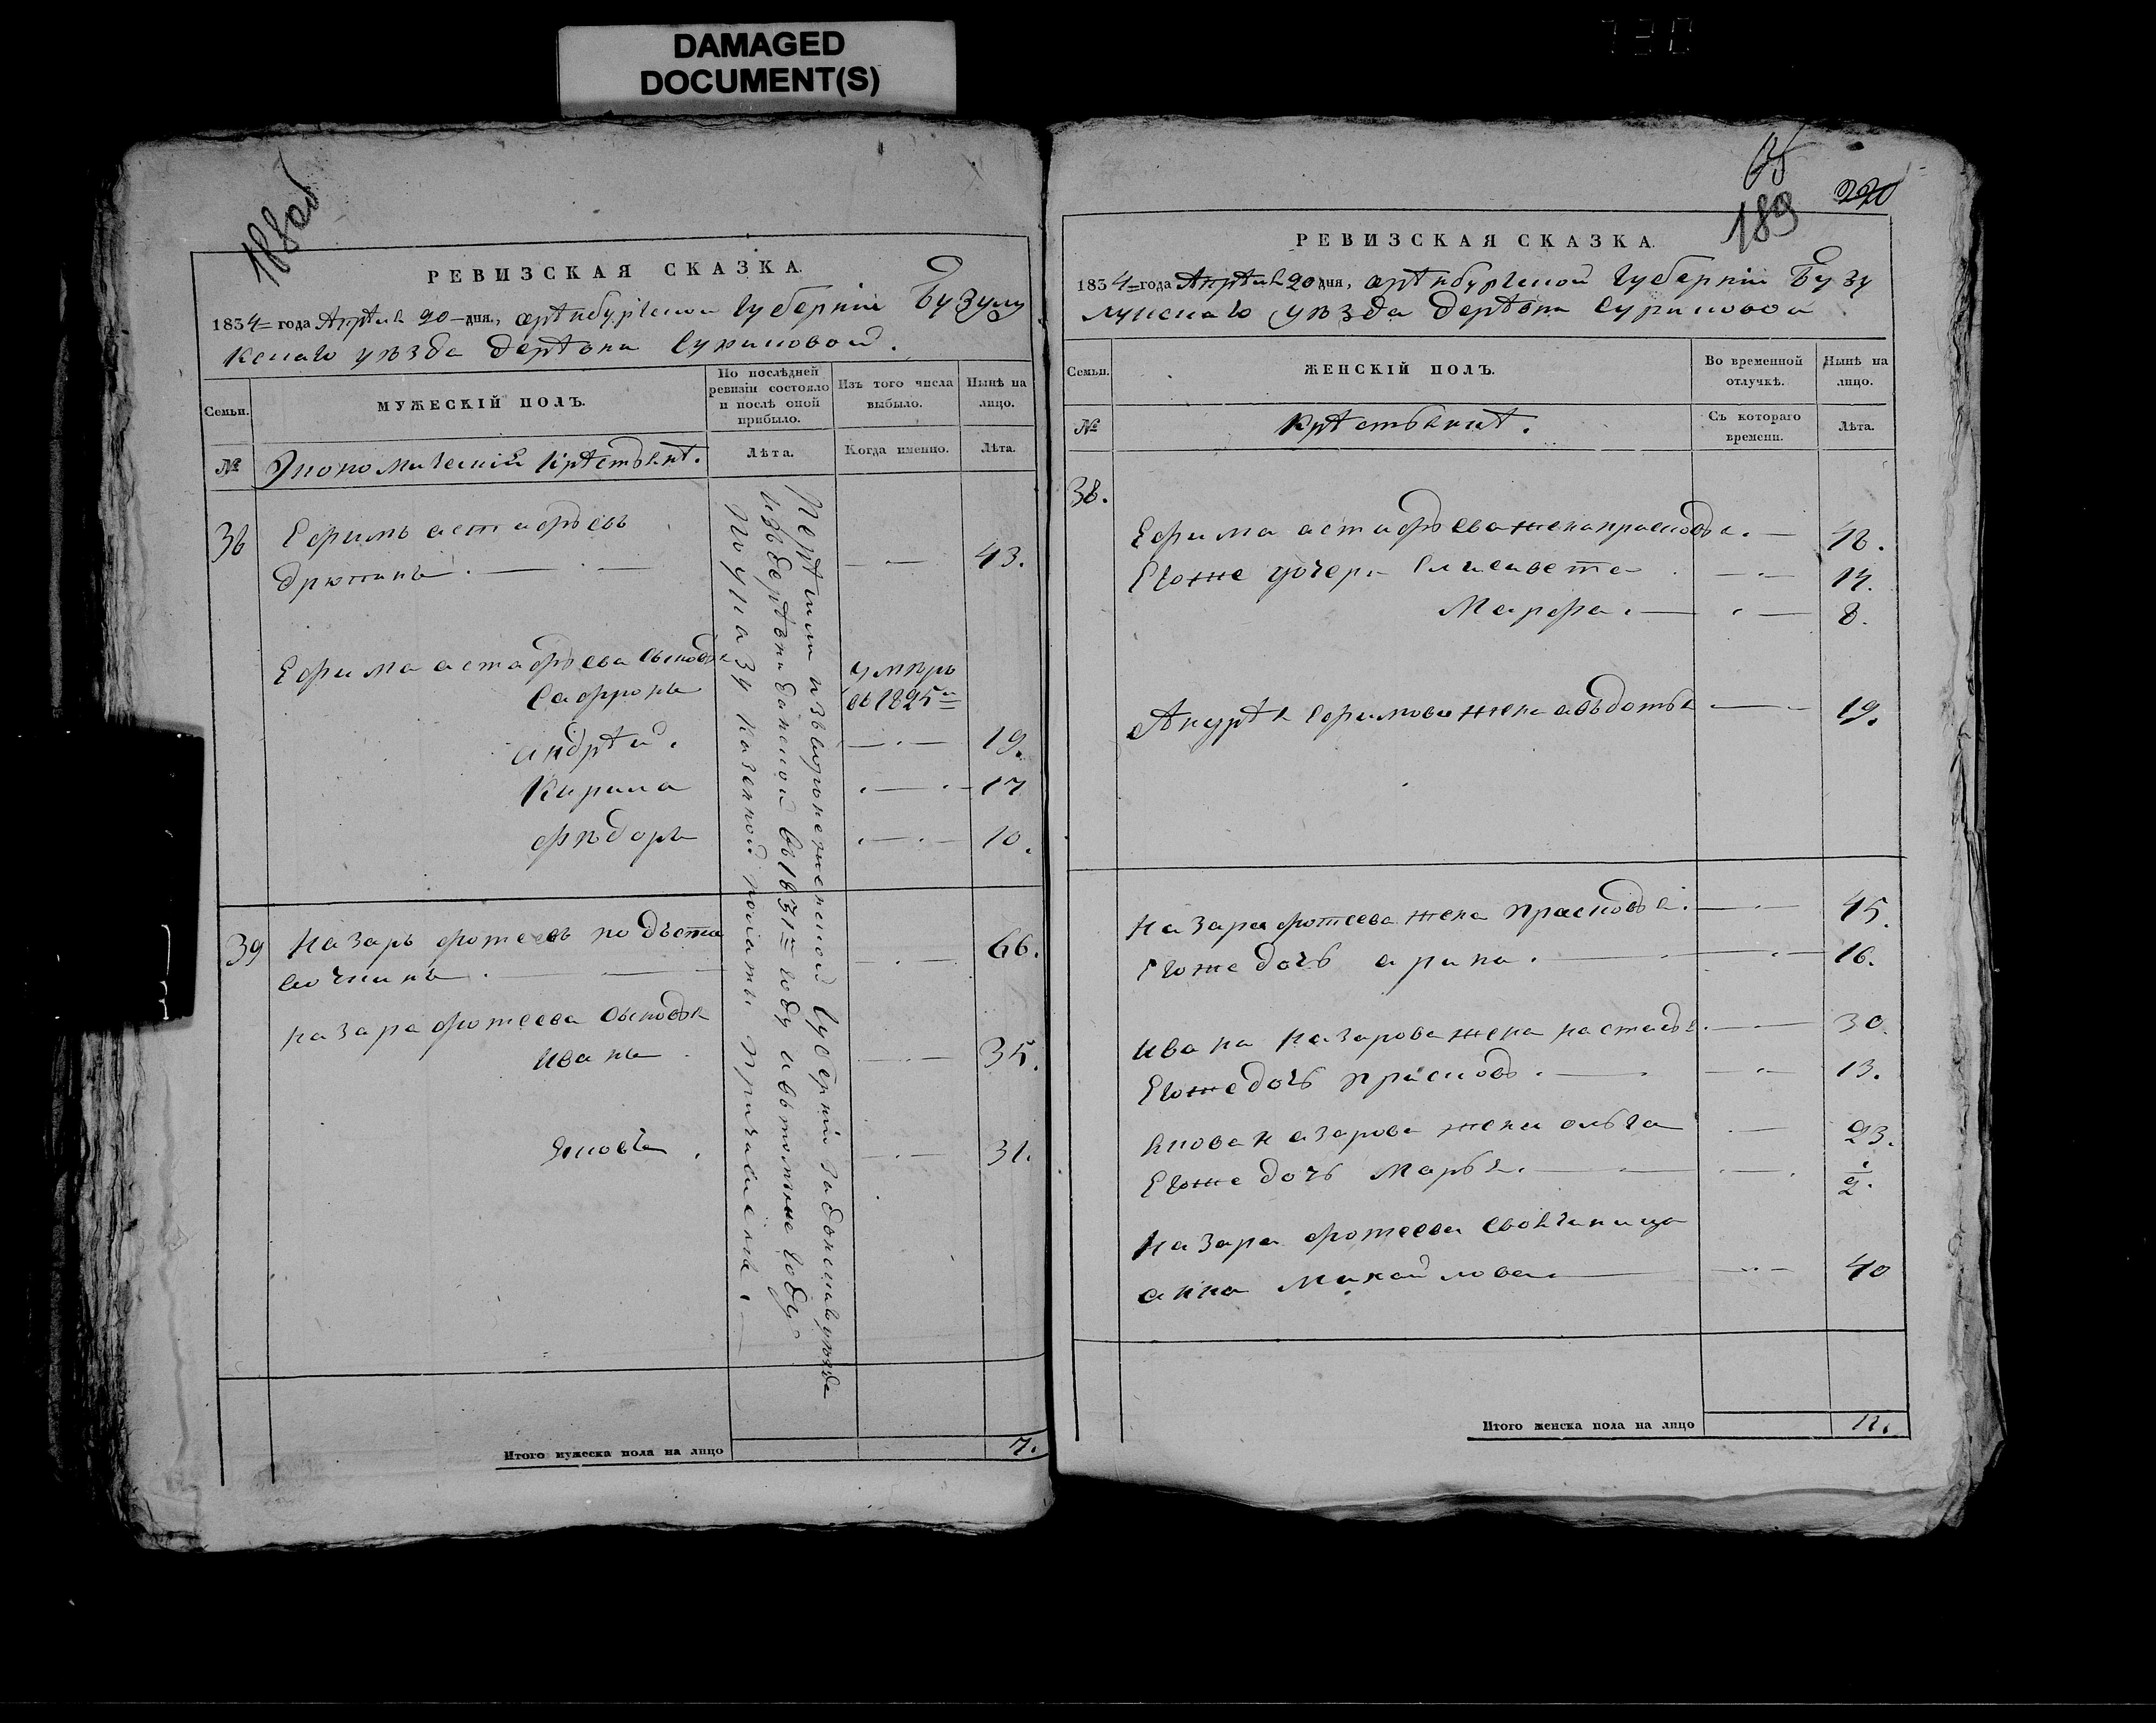 DAMAGED
DOCUMENT(S)
188об
РЕВИЗСКАЯ СКАЗКА.
1834 года Апреля 20 дня, оренбургской губернии Бузулу
кскаго уѣзда деревни Суриковой.
Семьи.
МУЖЕСКІЙ ПОЛЪ.
По послѣдней
ревизіи состояло
и послѣ оной
прибыло.
Изъ того числа
выбыло.
Нынѣ на
лицо.
№
Экономическіе крестьяне.
Лѣта.
Когда именно.
Лѣта.
38
Ефимъ астафьевъ
дрюпинъ. 43.
Ефима астафьева сыновья
Сафронъ умеръ
въ 1825
андрей. 19.
Кирила 17
федоръ 10.
39 назаръ фотеевъ
66.
назара фотеева сыновья
иванъ 35.
яковъ. 31.
Перешли из воронежской губернии задонскаго уезда
из деревни в 1831 году и в томже году
По указу казенной полаты причислены.
Итого мужеска пола на лицо 7.
65
189
220
РЕВИЗСКАЯ СКАЗКА.
1834 года Апреля 20 дня, оренбургской губернии Бузу
лукскаго уѣзда деревни Суриковой
Семьи.
ЖЕНСКІЙ ПОЛЪ.
Во временной
отлучкѣ.
Нынѣ на
лицо.
№
крестьяне.
Съ котораго
времени.
Лѣта.
38.
Ефима астафьева жена прасковья. 42.
Егоже дочери Елисавета 14.
Марфа. 8.
Андрея ефимова жена авдотья 19.
назара фотеева жена прасковья. 45.
Егоже дочь арина. 16.
ивана назарова жена настасья. 30.
Егоже дочь прасковья. 13.
якова назарова жена ольга 23.
Егоже дочь марья. 1/2.
назара фотеева свояченица
анна михайлова 40
Итого женска пола на лицо 11.